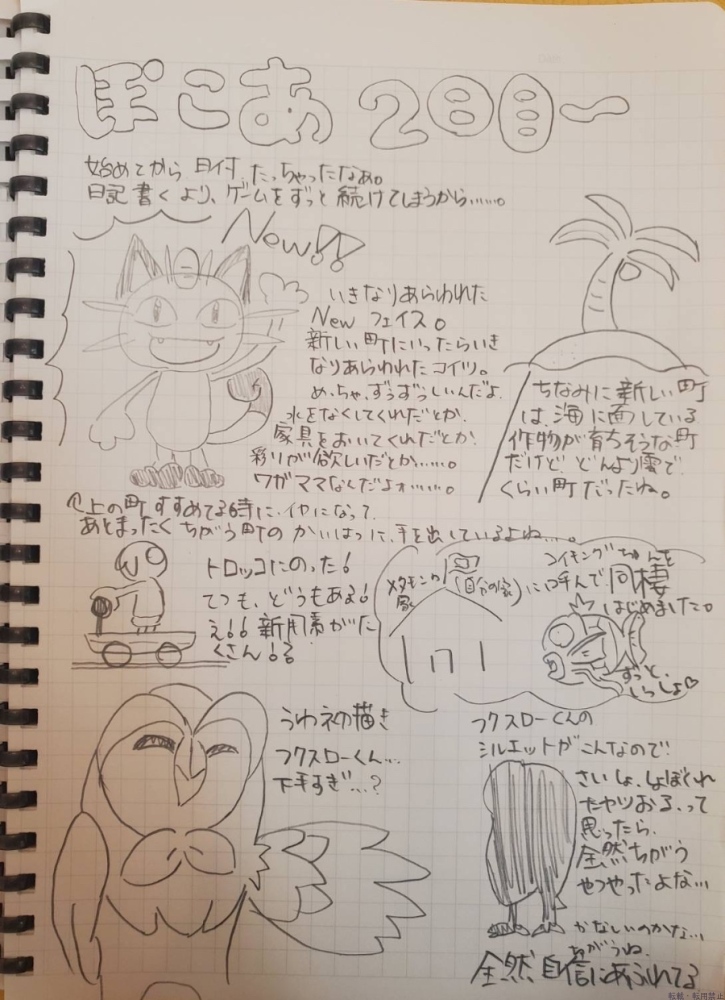 ぽこあ 2日目〜
始めてから 日付 たっちゃったなぁ。
日記書くより、ゲームをずっと続けてしまうから……。
New!!
いきなりあらわれた
New フェイス。
新しい町にいったらいき
なりあらわれたコイツ。
めっちゃ、ずうずうしいんだよ
水をなくしてくれだとか、
家具をおいてくれだとか
彩りが欲しいだとか……。
ワガママなんだよォ……。
ちなみに新しい町
は、海に面している
作物が育ちそうな町
だけど どんより雲で
くらい町だったね。
上の町すすめてる時に、イヤになって
あとまったくちがう町のかいはつに、手を出しているよね…。
トロッコにのった!
てつも、どうもある!
え!!新用素がた
くさん!る
メタモンの家
(自分の家)
コイキングちゃんを
に呼んで同棲
はじめました。
ずっと、
いっしょ♡
うわネ初描き
フクスローくん…
下手すぎ…?
フクスローくんの
シルエットがこんなので!
さいしょ、しょぼくれ
たヤツおる、って
思ったら、
全然ちがう
やつやったよな…
かなしいのかな…
ちがうね、
全然自信にあふれてる
転載・転用禁止